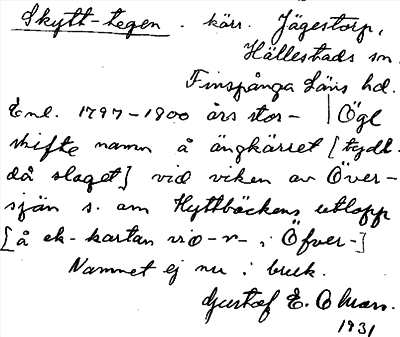 Skytt-tegen. kärr. Jägestorp,
Hällestads sn.
Finspånga läns hd.
Enl. 1797-1800 års stor- | Ögl
skifte namn å ängkärret [tydl.
då slaget] vid viken av Över-
sjön s. om Hyttbäckens utlopp
[å ek-kartan vid -r- i Öfver-]
Namnet ej nu i bruk.
Gustaf E. Ohman.
1931